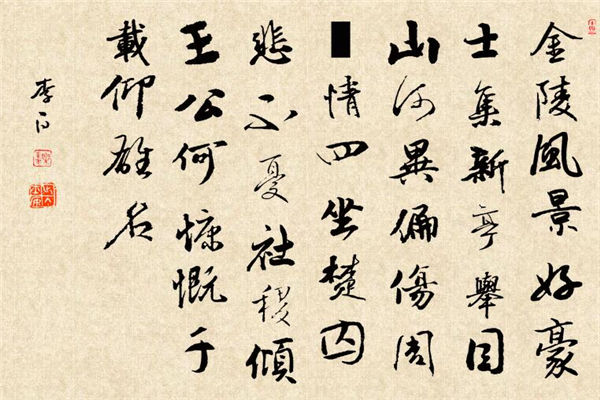 金陵風景好豪
士集新亭舉目
山河異偏傷周
情四坐楚囚
悲不憂社稷傾
王公何慷慨千
載仰雄名
李白